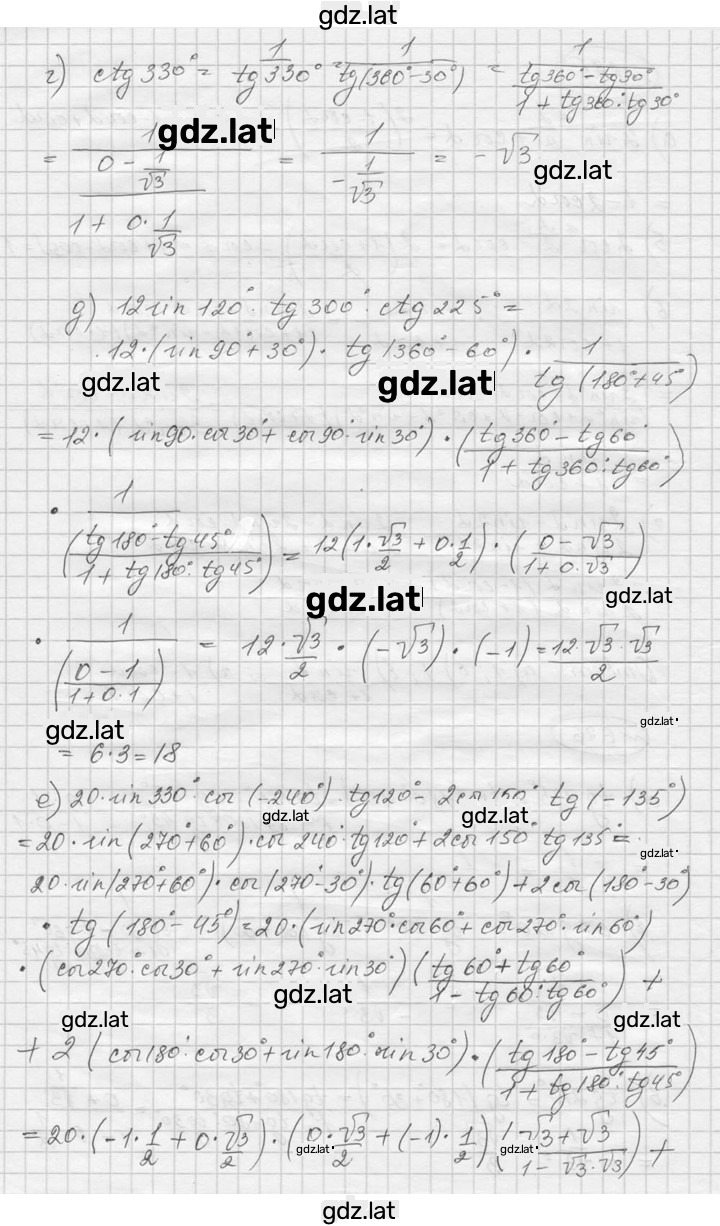 gdz.lat
г) ctg 330° = 1/tg 330° = 1/tg(360°-30°) = 1/((tg360°-tg30°)/(1+tg360°·tg30°))
= 1/((0 - 1/√3)/(1 + 0·1/√3)) = 1/(-1/√3) = -√3
gdz.lat
gdz.lat
д) 12 sin 120° · tg 300° · ctg 225° =
12·(sin 90°+30°)· tg (360°-60°)· 1/tg (180°+45°)
gdz.lat
gdz.lat
= 12·( sin90·cos30°+ cos90°·sin30°)·((tg360°-tg60°)/(1+tg360°·tg60°))
· 1/((tg180°-tg45°)/(1+tg180°·tg45°)) = 12(1·√3/2 + 0·1/2)·((0-√3)/(1+0·√3))
gdz.lat
gdz.lat
· 1/((0-1)/(1+0·1)) = 12·√3/2·(-√3)·(-1) = 12·√3·√3/2
gdz.lat
gdz.lat
= 6·3=18
е) 20·sin 330°·cos (-240°)·tg120°- 2cos 150° tg (-135°)
gdz.lat
gdz.lat
=20·sin(270°+60°)·cos 240°·tg120°+ 2cos 150° tg 135°=
gdz.lat
20·sin(270°+60°)·cos(270°-30°)·tg(60°+60°)+2cos(180°-30°)
· tg (180°-45°)=20·(sin270°·cos60°+cos270°·sin60°)
·(cos270°·cos30°+sin270°·sin30°)((tg60°+tg60°)/(1-tg60°·tg60°)) +
gdz.lat
gdz.lat
gdz.lat
+ 2 (cos180°·cos30°+sin180°·sin30°)·((tg180°-tg45°)/(1+tg180°·tg45°))
=20·(-1·1/2+0·√3/2)·(0·√3/2+(-1)·1/2)((√3+√3)/(1-√3·√3)) +
gdz.lat
gdz.lat
gdz.lat